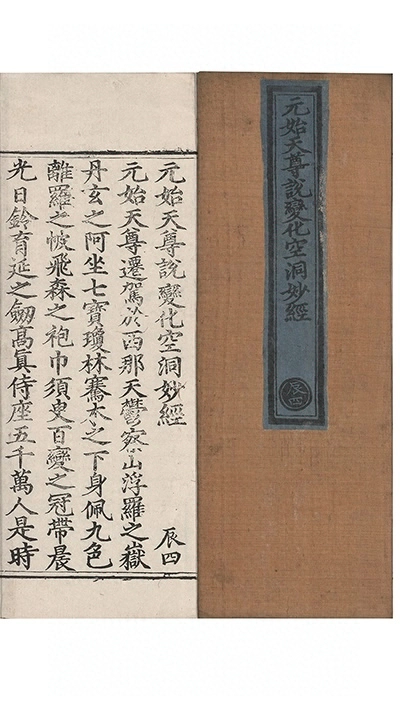 元始天尊說變化空洞妙經
辰四
元始天尊說變化空洞妙經 辰四
元始天尊遷駕於西那天鬱察山浮羅之嶽
丹玄之阿坐七寶瓊林騫木之下身佩九色
離羅之帔飛森之袍巾須臾百變之冠帶晨
光日鈴育延之劒高真侍座五千萬人是時